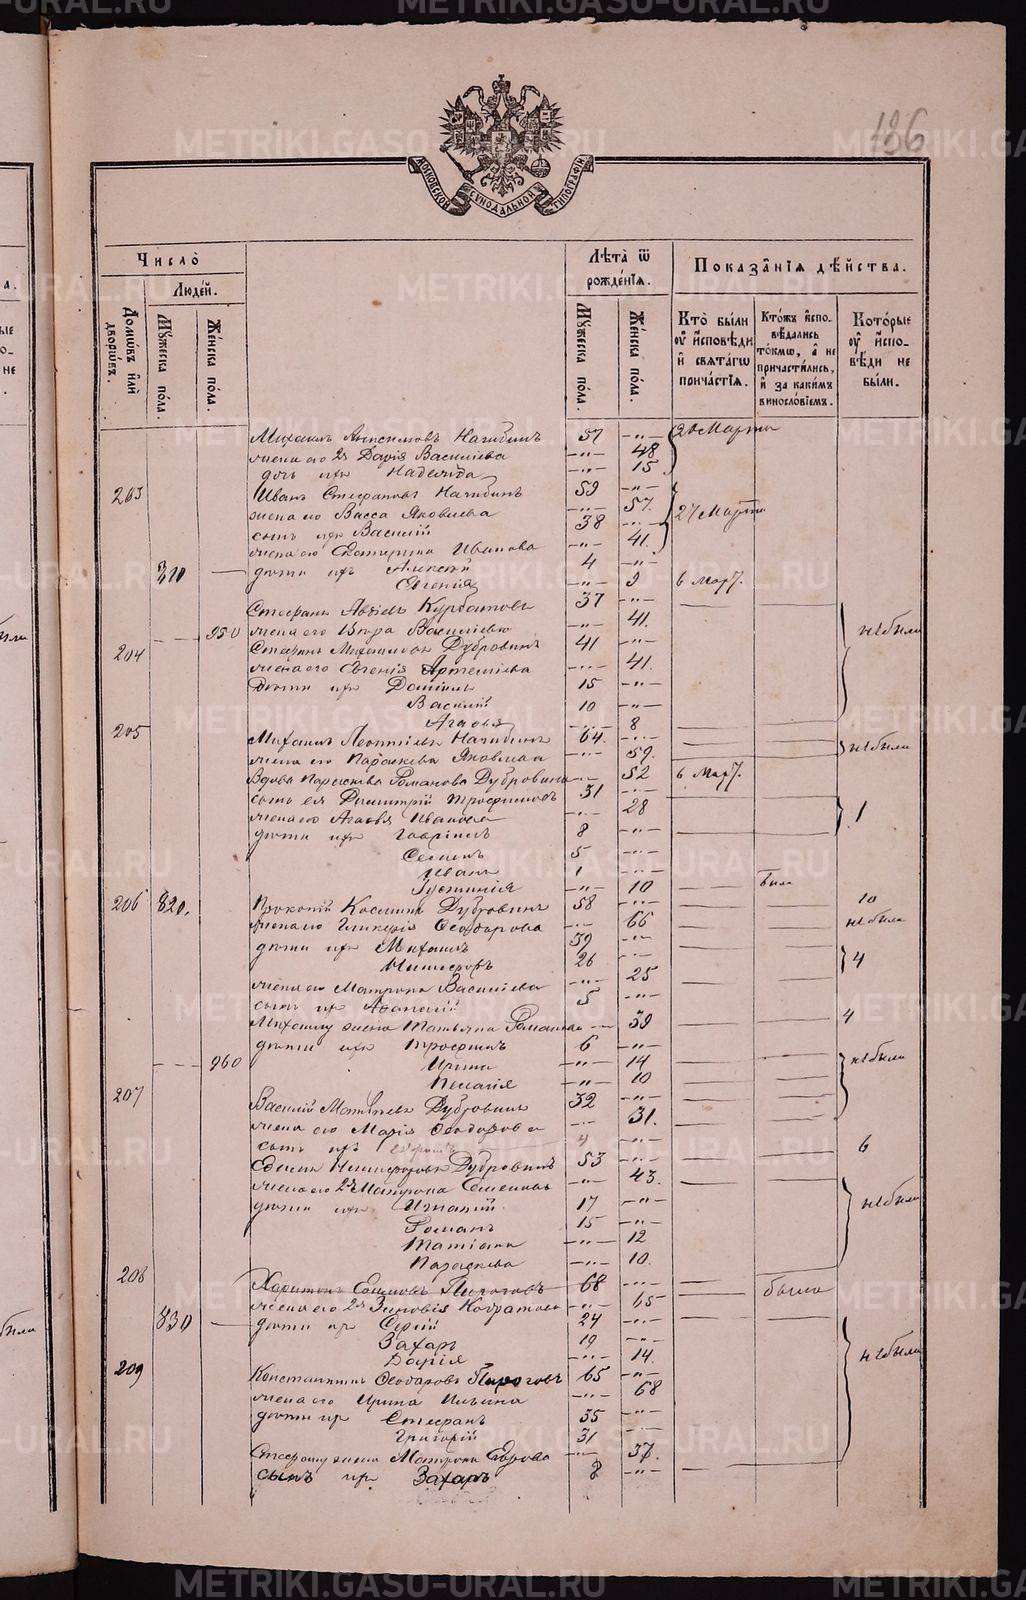 186
МОСКОВСКОЙ СѴНОДАЛЬНОЙ ТИПОГРАФІИ
Число̀
Люде́й.
Домѡ́въ и҆лѝ дворѡ́въ.
Мꙋ́жеска по́ла.
Же́нска по́ла.
Лѣ́та ѿ рожде́нїѧ.
Мꙋ́жеска по́ла.
Же́нска по́ла.
Показа̑нїѧ дѣ́йства.
Кто̀ бы́ли оу҆ и҆сповѣди и҆ свѧта́гѡ прича́стїѧ.
Кто́жъ и҆спо- вѣ́дались то́кмѡ, а҆ не причасти́лись, и҆ за каки́мъ винослові́емъ.
Кото́рые оу҆ и҆спо- вѣ́ди не бы́ли.
Михаилъ Анисимовъ Нагибинъ 57 -"- 20 Марта
жена его 2я Дарія Васильева -"- 48
дочь ихъ Надежда -"- 15
203 Иванъ Стефановъ Нагибинъ 59 -"-
жена его Васса Яковлева -"- 57. 27 Марта
сынъ ихъ Василій 38 -"-
жена его Екатерина Иванова -"- 41.
310 дѣти ихъ Алексѣй 4 -"-
Евгенія -"- 9 6 Март.
Стефанъ Авдіевъ Курбатовъ 37 -"-
950 жена его Васильева -"- 41. не были
204 Стефанъ Михаиловъ Дубровинъ 41 -"-
жена его Евгенія Артеміева -"- 41.
Дѣти ихъ Даніилъ 15 -"-
Василій 10 -"-
Агаѳья -"- 8
205 Михаилъ Леонтіевъ Нагибинъ 64. -"- не были
жена его Параскева Яковлева -"- 59.
Вдова Параскева Романова Дубровина -"- 52 6 Март.
сынъ ея Димитрій Трофимовъ 31 -"-
жена его Агаѳья Иванова -"- 28 1
дѣти ихъ Гавріилъ 8 -"-
Семенъ 5 -"-
Иванъ 1 -"-
Іустинія -"- 10 была
206 820. Прокопій Косминъ Дубровинъ 58 -"- 10
жена его Гликерія Ѳеодорова -"- 66 не были
дѣти ихъ Михаилъ 39 -"-
Никифоръ 26 -"- 4
жена его Матрона Васильева -"- 25
сынъ их Аѳанасій 5 -"-
Михаилу жена Татьяна Романова -"- 39 4
дѣти ихъ Трофимъ 6 -"-
960 Ирина -"- 14 не были
Пелагія -"- 10
207 Василій Матвѣевъ Дубровинъ 32 -"-
жена его Марія Ѳеодорова -"- 31.
сынъ ихъ 4 -"- 6
Никифоровъ Дубровинъ 53 -"-
жена его 2я Матрона Семенова -"- 43.
дѣти ихъ Игнатій 17 -"- не были
Романъ 15 -"-
Татіана -"- 12
Параскева -"- 10.
208 Харитонъ Ефимовъ Пироговъ 68 -"- были
жена его 2я Зиновія Кондратова -"- 65
830 дѣти их Сергій 24 -"-
Захаръ 19 -"-
Дарія -"- 14. не были
209 Константинъ Ѳеодоровъ Пироговъ 65 -"-
жена его Ирина Ильина -"- 68
дѣти их Стефанъ 35 -"-
Григорій 31 -"-
Стефану жена Матрона Егорова -"- 37.
сынъ их Захаръ 8 -"-
METRIKI.GASO-URAL.RU